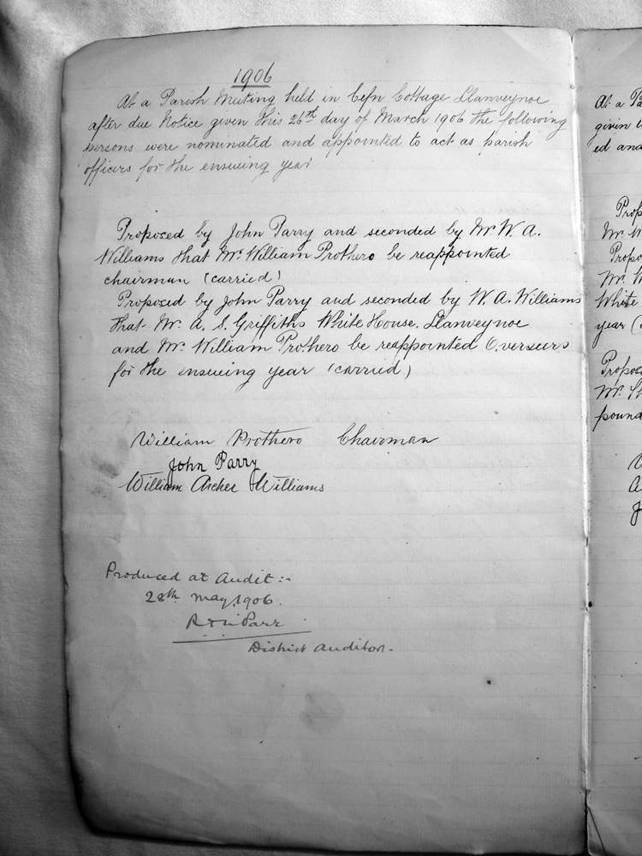 1906
At a Parish Meeting held in Cefn Cottage Llanveynoe
after due Notice given this 26th day of March 1906 the following
persons were nominated and appointed to act as parish
officers for the ensueing year
Proposed by John Parry and seconded by Mr W. A.
Williams that Mr William Prothero be reappointed
chairman (carried)
Proposed by John Parry and seconded by W. A. Williams
that Mr. A. S. Griffiths White House. Llanveynoe
and Mr. William Prothero be reappointed Overseers
for the ensueing year (carried)
William Prothero Chairman
John Parry
William Archer Williams
Produced at Audit:-
28th May, 1906.
Parr
District Auditor.
At a Pa
given
ed and
Prop
Mr W
Propo
Mr W
White
year (
Propose
Mr.
pound